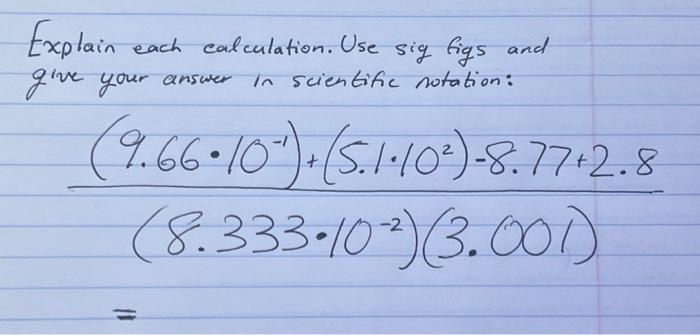 Explain each calculation. Use sig figs and
give your answer in scientific notation:
(9.66•10⁻¹)+(5.1•10²)-8.77+2.8
(8.333•10⁻²)(3.001)
=